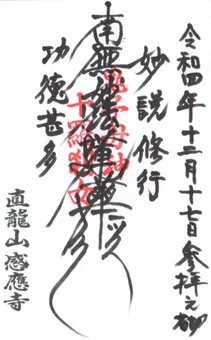 令和四年十二月十七日参拝之砌
妙説修行
南無妙法蓮華経
功徳甚多
直龍山感應寺